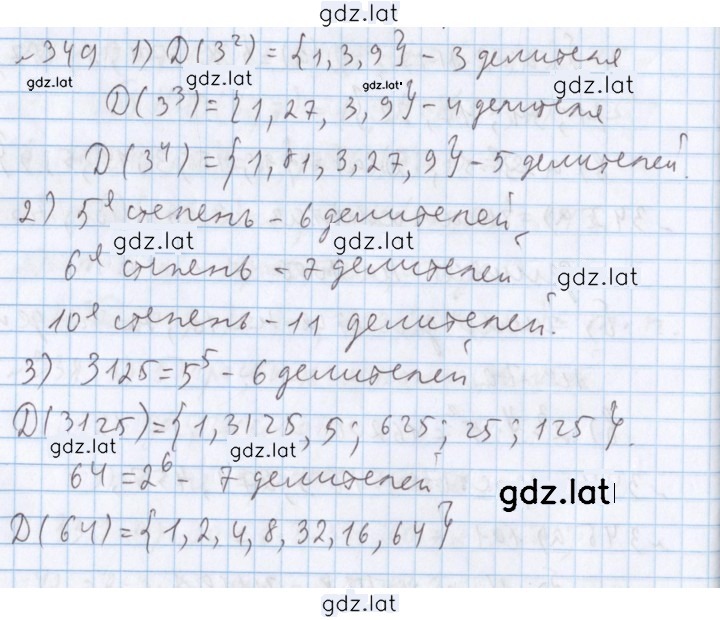 gdz.lat
№349 1) D(3²) = {1, 3, 9} - 3 делителя
gdz.lat gdz.lat gdz.lat gdz.lat
D(3³) = {1, 27, 3, 9} - 4 делителя
D(3⁴) = {1, 81, 3, 27, 9} - 5 делителей.
2) 5я степень - 6 делителей
gdz.lat gdz.lat
6я степень - 7 делителей
gdz.lat
10я степень - 11 делителей.
3) 3125 = 5⁵ - 6 делителей
D(3125) = {1, 3125, 5; 625; 25; 125}.
gdz.lat gdz.lat
64 = 2⁶ - 7 делителей
gdz.lat
D(64) = {1, 2, 4, 8, 32, 16, 64}
gdz.lat